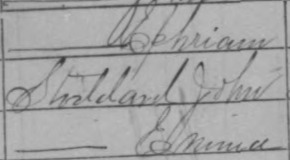 — Ephriam
Stoddard John
— Emma